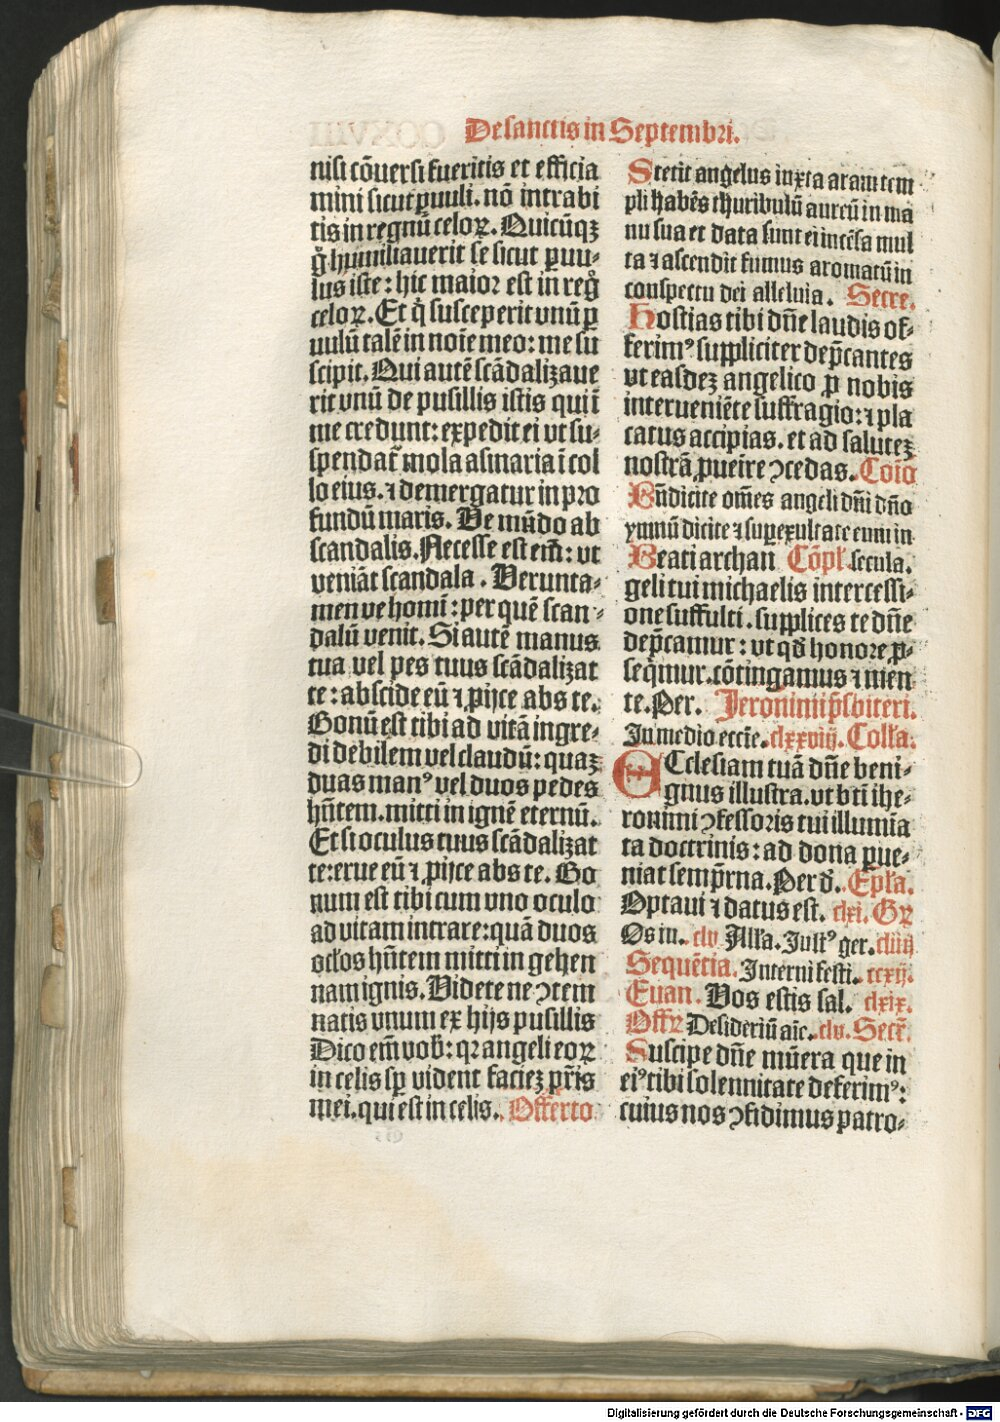 De sanctis in Septembri.
nisi cōuersi fueritis et efficia
mini sicut ꝑuuli. nō intrabi
tis in regnū celoꝝ. Quicūqꝫ
g̊ humiliauerit se sicut ꝑuu⸗
lus iste: hic maior est in reg̊
celoꝝ. Et q̇ susceperit vnū ꝑ
uulū talē in noīe meo: me su
scipit. Qui autē scādalizaue
rit vnū de pusillis istis qui ī
me credunt: expedit ei vt su⸗
spendat᷑ mola asinaria ī col
lo eius. ⁊ demergatur in pro
fundū maris. Ve mūdo ab
scandalis. Necesse est em̄: vt
veniāt scandala. Verunta⸗
men ve homī: per quē scan⸗
dalū venit. Si autē manus
tua vel pes tuus scādalizat
te: abscide eū ⁊ ꝓijce abs te.
Bonū est tibi ad vitā ingre⸗
di debilem vel claudū: quaꝫ
duas manꝰ vel duos pedes
hn̄tem. mitti in ignē eternū.
Et si oculus tuus scādalizat
te: erue eū ⁊ ꝓijce abs te. Bo
num est tibi cum vno oculo
ad vitam intrare: quā duos
oc̄los hn̄tem mitti in gehen
nam ignis. Videte ne ꝯtem
natis vnum ex hijs pusillis
Dico em̄ vob̄: qꝛ angeli eoꝝ
in celis sp̱ vident faciez pr̄is
mei. qui est in celis. Offerto
Stetit angelus iuxta aram tem
pli habēs thuribulū aureū in ma
nu sua et data sunt ei incēsa mul
ta ⁊ ascendit fumus aromatū in
conspectu dei alleluia. Secre.
Hostias tibi dn̄e laudis of⸗
ferimꝰ suppliciter dep̄cantes
vt easdeꝫ angelico ꝑ nobis
interueniēte suffragio: ⁊ pla
catus accipias. et ad saluteꝫ
nostrā ꝓueīre ꝯcedas. Coīo
Bn̄dicite om̄es angeli dn̄i dn̄o
ymnū dicite ⁊ superexultate eum in
Beati archan Cōpl̄. secula.
geli tui michaelis intercessi⸗
one suffulti. supplices te dn̄e
dep̄camur: vt qd̄ honore ꝓ⸗
seq̄mur. cōtingamus ⁊ men
te. Per. Jeronimi p̄sbiteri.
In medio eccīe. clxxviij. Coll̄a.
ECclesiam tuā dn̄e beni⸗
gnus illustra. vt bt̄i ihe⸗
ronimi ꝯfessoris tui illumīa
ta doctrinis: ad dona ꝑue⸗
niat semp̄rna. Per d̄. Epl̄a.
Optaui ⁊ datus est. clxi. Gꝝ
Os iu. clv All̄a. Iustꝰ ger. cliiij
Sequētia. Interni festi. ccxij.
Euan. Vos estis sal. clxix.
Offꝝ Desideriū aīe. clv. Secr̄.
Suscipe dn̄e mūera que in
eiꝰ tibi solennitate deferimꝰ:
cuius nos ꝯfidimus patro⸗
Digitalisierung gefördert durch die Deutsche Forschungsgemeinschaft - DFG